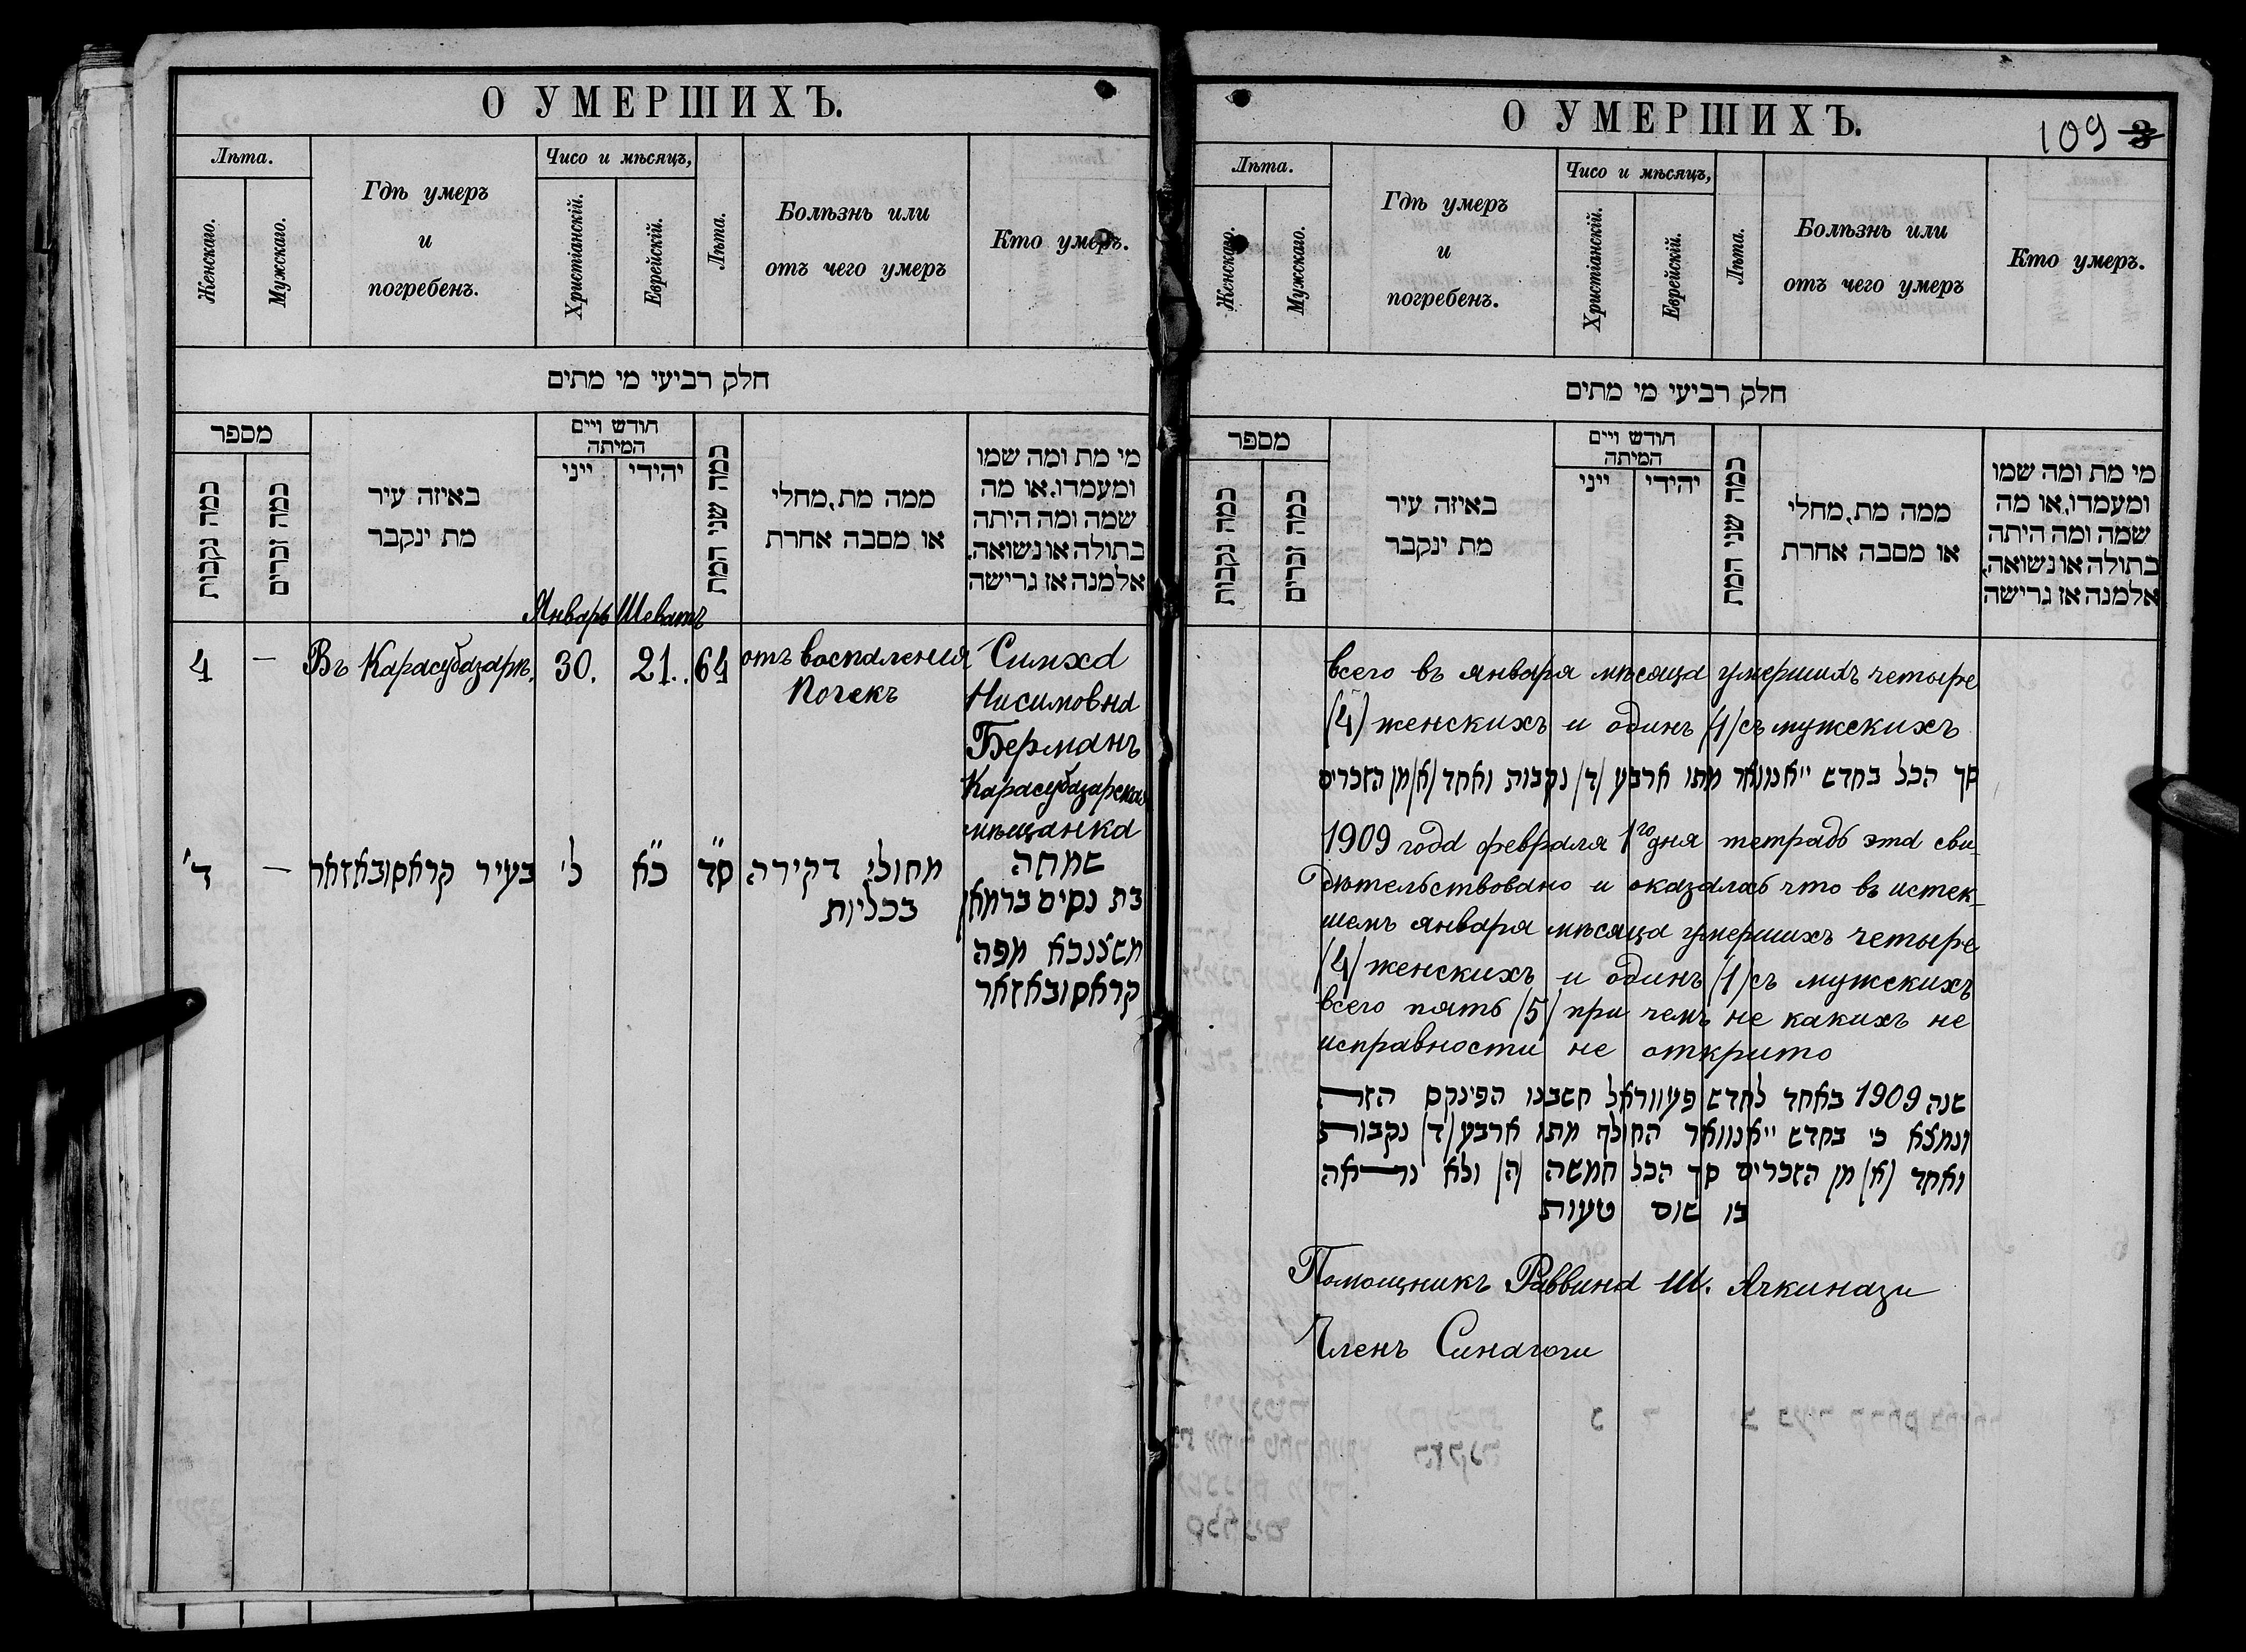 О УМЕРШИХЪ.
Лѣта.
Женскаго.
Мужскаго.
Гдѣ умеръ
и
погребенъ.
Чисо и мѣсяцъ,
Христіанскій.
Еврейскій.
Лѣта.
Болѣзнь или
отъ чего умеръ
Кто умеръ.
חלק רביעי מי מתים
מספר
כמה נקבות
כמה זכרים
באיזה עיר
מת ינקבר
חודש ויים
המיתה
ייני
יהידי
כמה שני המת
ממה מת, מחלי
או מסבה אחרת
מי מת ומה שמו
ומעמדו, או מה
שמה ומה היתה
בתולה או נשואה,
אלמנה אז גרישה
Январь Шеватъ
4 — Въ Карасубазарѣ, 30. 21. 64 отъ воспаления Симха
почекъ Нисимовна
Берманъ
Карасубазарская
мѣщанка
ד' — בעיר קראסובאזאר ל' כ"א ס"ד מחולי דקירה שמחה
בכליות בת נסים ברמאן
משצנכא מפה
קראסובאזאר
О УМЕРШИХЪ.
109 3
Лѣта.
Женскаго.
Мужскаго.
Гдѣ умеръ
и
погребенъ.
Чисо и мѣсяцъ,
Христіанскій.
Еврейскій.
Лѣта.
Болѣзнь или
отъ чего умеръ
Кто умеръ.
חלק רביעי מי מתים
מספר
כמה נקבות
כמה זכרים
באיזה עיר
מת ינקבר
חודש ויים
המיתה
ייני
יהידי
כמה שני המת
ממה מת, מחלי
או מסבה אחרת
מי מת ומה שמו
ומעמדו, או מה
שמה ומה היתה
בתולה או נשואה,
אלמנה אז גרישה
всего въ января мѣсяца умершихъ четыре
(4) женскихъ и одинъ (1) съ мужскихъ
סך הכל בחדש יאנוואר מתו ארבע (ד) נקבות ואחד (א) מן הזכרים
1909 года февраля 1го дня тетрадь эта сви-
дѣтельствовано и оказалась что въ истек-
шемъ января мѣсяца умершихъ четыре
(4) женскихъ и одинъ (1) съ мужскихъ
всего пять (5) при чемъ не какихъ не
исправности не открито
שנה 1909 באחד לחדש פעווראל חשבנו הפינקס הזה
ונמצא כי בחדש יאנוואר החולף מתו ארבע (ד) נקבות
ואחד (א) מן הזכרים סך הכל חמשה (ה) ולא נראה
בו שום טעות
Помощникъ Раввина Ш. Ачкинази
Членъ Синагоги